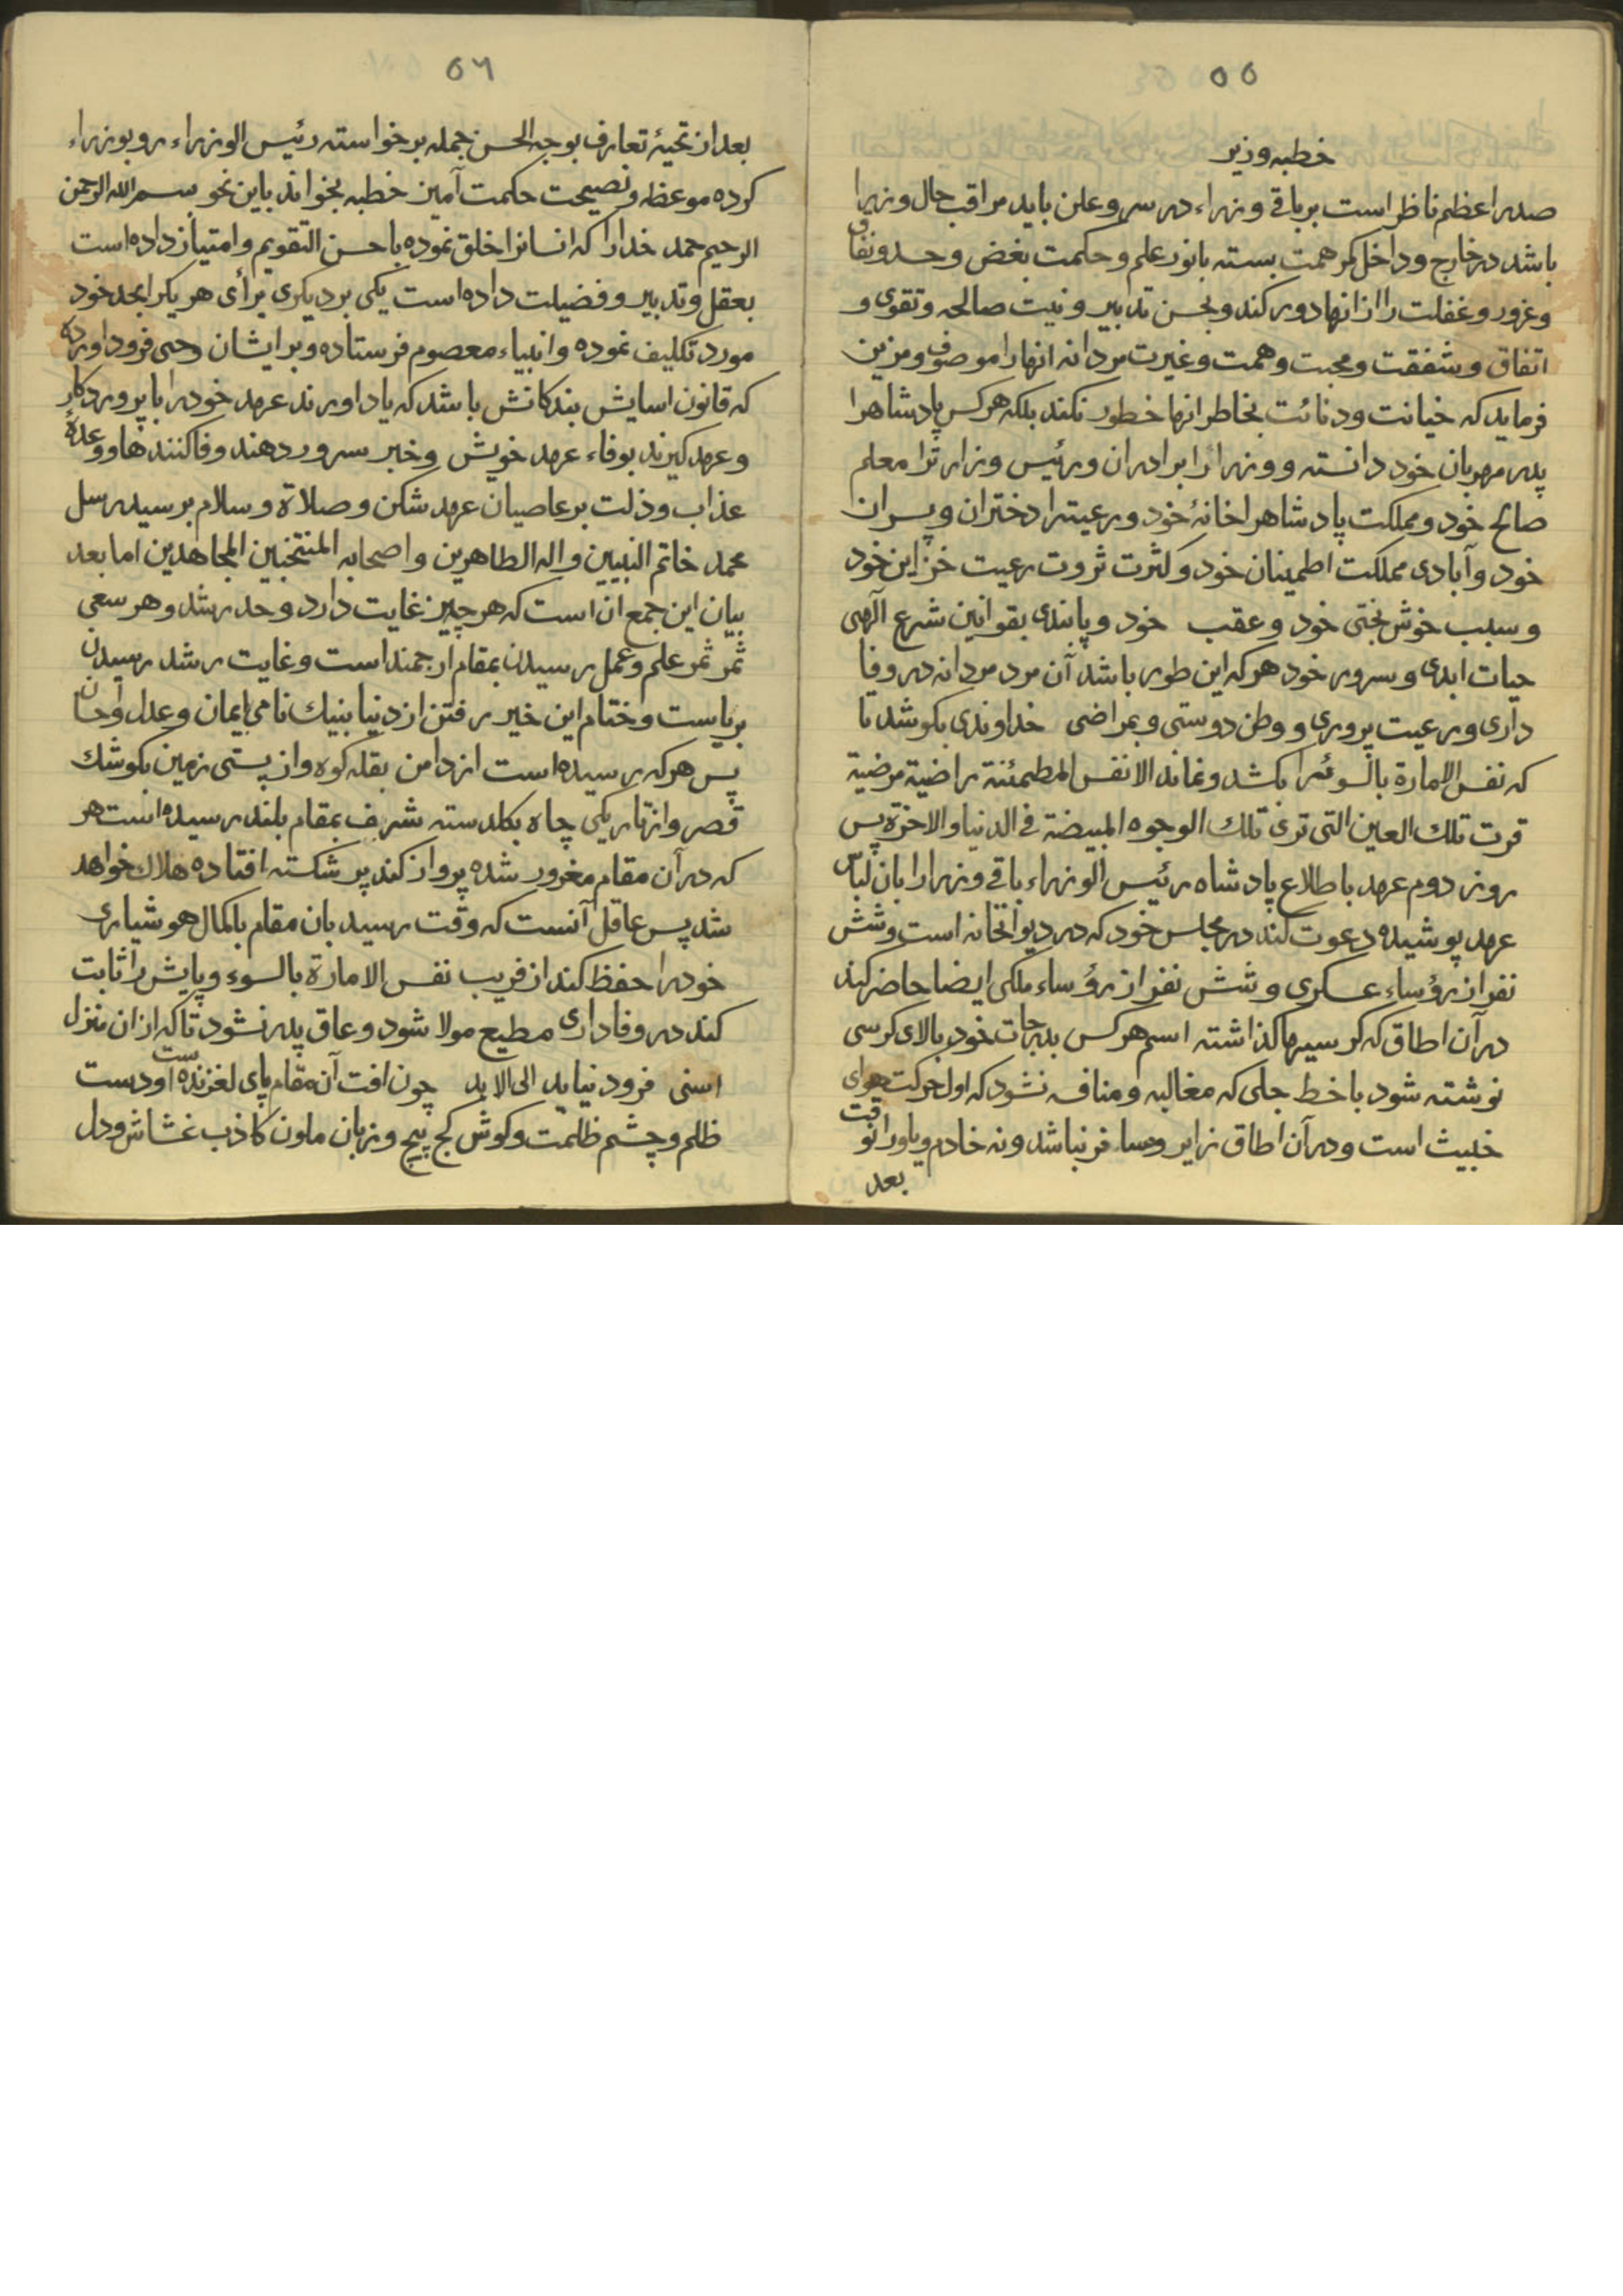 ٥٥
خطبه وزیر
صدر اعظم ناظر است بر باقی وزراء در سر و علن باید مراقب حال وزیرا
باشد در خارج و داخل کمر همت بسته بانور علم و حکمت بغض و حسد و نفاق
و غرور و غفلت را از انها دور کند و بحسن تدبیر و نیت صالحه و تقوی و
اتفاق و شفقت و محبت و همت و غیرت مردانه انها را موصوف و مزین
فرماید که خیانت و دنائت بخاطر انها خطور نکند بلکه هر کس پادشاهرا
پدر مهربان خود دانسته و وزیرا را برادران و رئیس وزارترا معلم
صالح خود و مملکت پادشاهرا خانهٔ خود و رعیترا دختران و پسران
خود و آبادی مملکت اطمینان خود و کثرت ثروت رعیت خزاین خود
و سبب خوش بختی خود و عقب خود و پابندی بقوانین شرع الهی
حیات ابدی و سرور خود هر که این طور باشد آن مرد مردانه در وفا
داری و رعیت پروری و وطن دوستی و بمراضی خداوندی بکوشد تا
که نفس الامارة بالسوئرا بکشد و نماند الا نفس المطمئنة راضیة مرضیة
قرت تلك العین التی تری تلك الوجوه المبیضة فی الدنیا والاخرة پس
روز دوم عهد باطلاع پادشاه رئیس الوزراء باقی وزرا را بان لباس
عهد پوشیده دعوت کند در مجلس خود که در دیوانخانه است و شش
نفر از رؤساء عسکری و شش نفر از رؤساء ملکی ایضا حاضر کند
در آن اطاق که کرسیها کذاشته اسم هر کس بدرجات خود بالای کرسی
نوشته شود با خط جلی که مغالبه و منافسه نشود که اول حرکت هوای
خبیث است و در آن اطاق زایر و مسافر نباشد و نه خادم و یاور انوقت
بعد
٥٦
بعد از تحیهٔ تعارف بوجه الحسن جمله برخواسته رئیس الوزراء رو بوزراء
کرده موعظه و نصیحت حکمت آمیز خطبه بخواند باین نحو بسم الله الرحمن
الرحیم حمد خدارا که انسانرا خلق نموده باحسن التقویم و امتیاز داده است
بعقل و تدبیر و فضیلت داده است یکی بر دیکری برأی هر یکرا بحد خود
مورد تکلیف نموده و انبیاء معصوم فرستاده و بر ایشان وحی فرود اورده
که قانون اسایش بندکانش باشد که یاد اورند عهد خود را با پروردکار
و عهد کیرند بوفاء عهد خویش و خبر سرور دهند وفا کنندها و وعدهٔ
عذاب و ذلت بر عاصیان عهد شکن و صلاة و سلام بر سید رسل
محمد خاتم النبیین و اله الطاهرین و اصحابه المنتخبین المجاهدین اما بعد
بیان این جمع ان است که هر چیز غایت دارد و حد رشد و هر سعی
ثمر ثمر علم و عمل رسیدن بمقام ارجمند است و غایت رشد رسیدن
بریاست و ختام این خیر رفتن از دنیا بنیك نامی بایمان و عدل و احسان
پس هر که رسیده است از دامن بقله کوه و از پستی زمین بکوشك
قصر و از تاریکی چاه بکلدسته شرف بمقام بلند رسیده است هر
که در آن مقام مغرور شده پرواز کند پر شکسته افتاده هلاك خواهد
شد پس عاقل آنست که وقت رسید بان مقام باکمال هوشیاری
خود را حفظ کند از فریب نفس الامارة بالسوء و پایش را ثابت
کند در وفاداری مطیع مولا شود و عاق پدر نشود تا که از ان منزل
اسنی فرود نیاید الی الابد چون افت آن مقام پای لغزنده است او دست
ظلم و چشم ظلمت و کوش کج پیچ و زبان ملون کاذب غشاش و دل